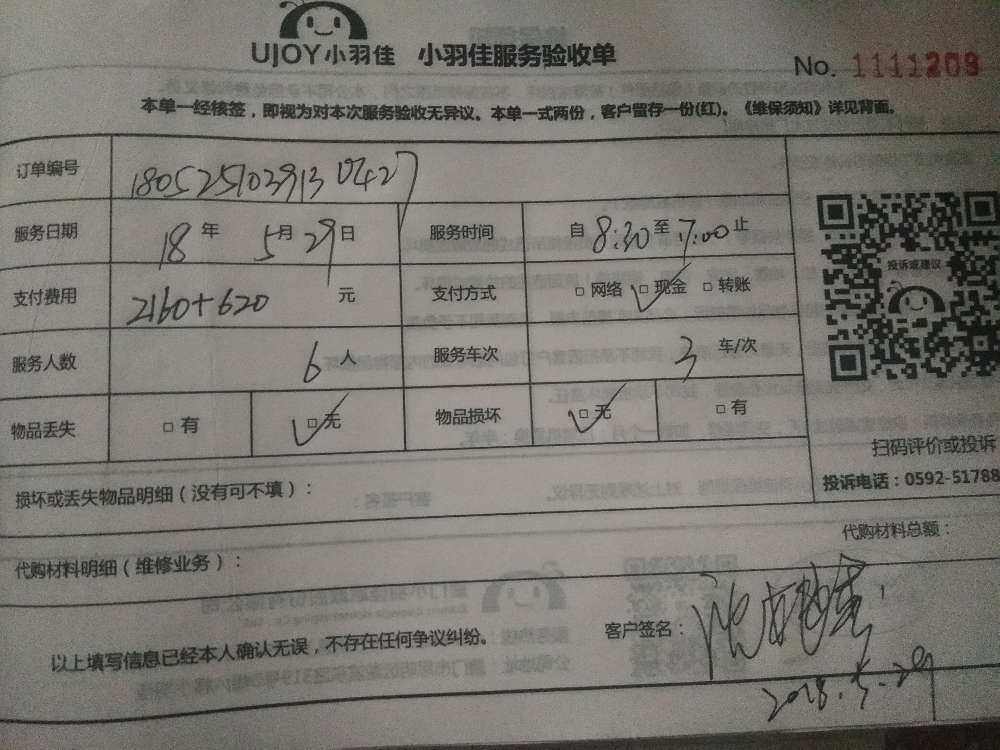 UJOY小羽佳 小羽佳服务验收单
No. 1111209
本单一经核签，即视为对本次服务验收无异议。本单一式两份，客户留存一份(红)。《维保须知》详见背面。
订单编号 180525103913 0427
服务日期 18年 5月29日 服务时间 自8:30至17:00止
支付费用 2160+620 元 支付方式 □网络 □现金 □转账
投诉或建议
服务人数 6人 服务车次 3 车/次
物品丢失 □有 □无 物品损坏 □无 □有
扫码评价或投诉
损坏或丢失物品明细（没有可不填）：
投诉电话：0592-51788
代购材料明细（维修业务）： 代购材料总额：
以上填写信息已经本人确认无误，不存在任何争议纠纷。 客户签名：
2018.5.29